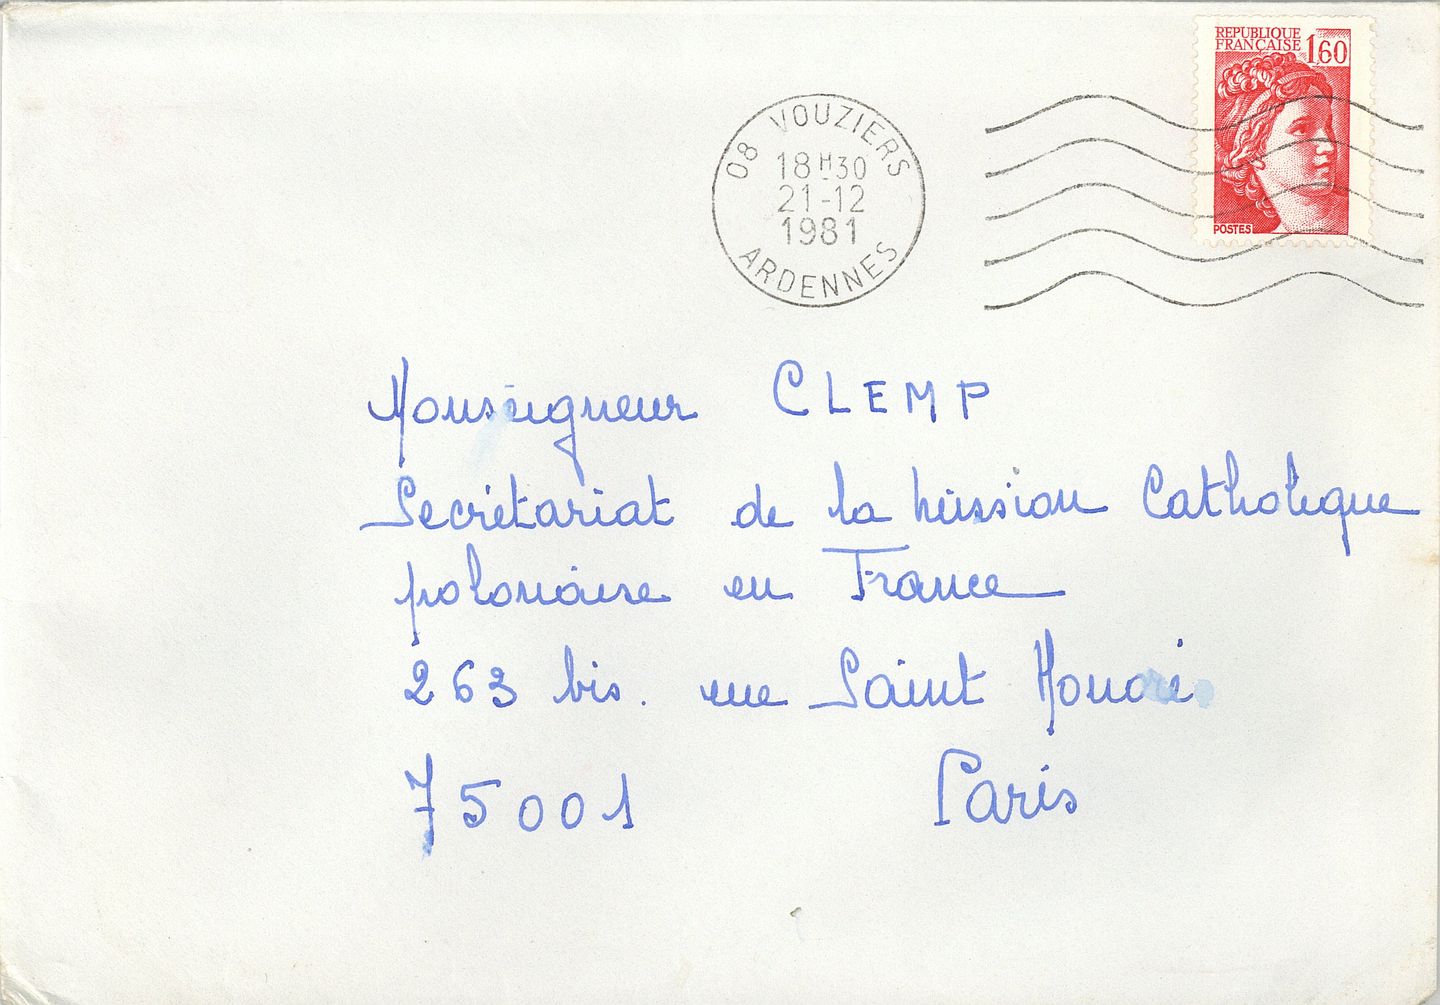 REPUBLIQUE
FRANÇAISE 1,60
POSTES
08 VOUZIERS
18H30
21-12
1981
ARDENNES
Monseigneur CLEMP
Secrétariat de la Mission Catholique
polonaise en France
263 bis. rue Saint Honoré
75001 Paris